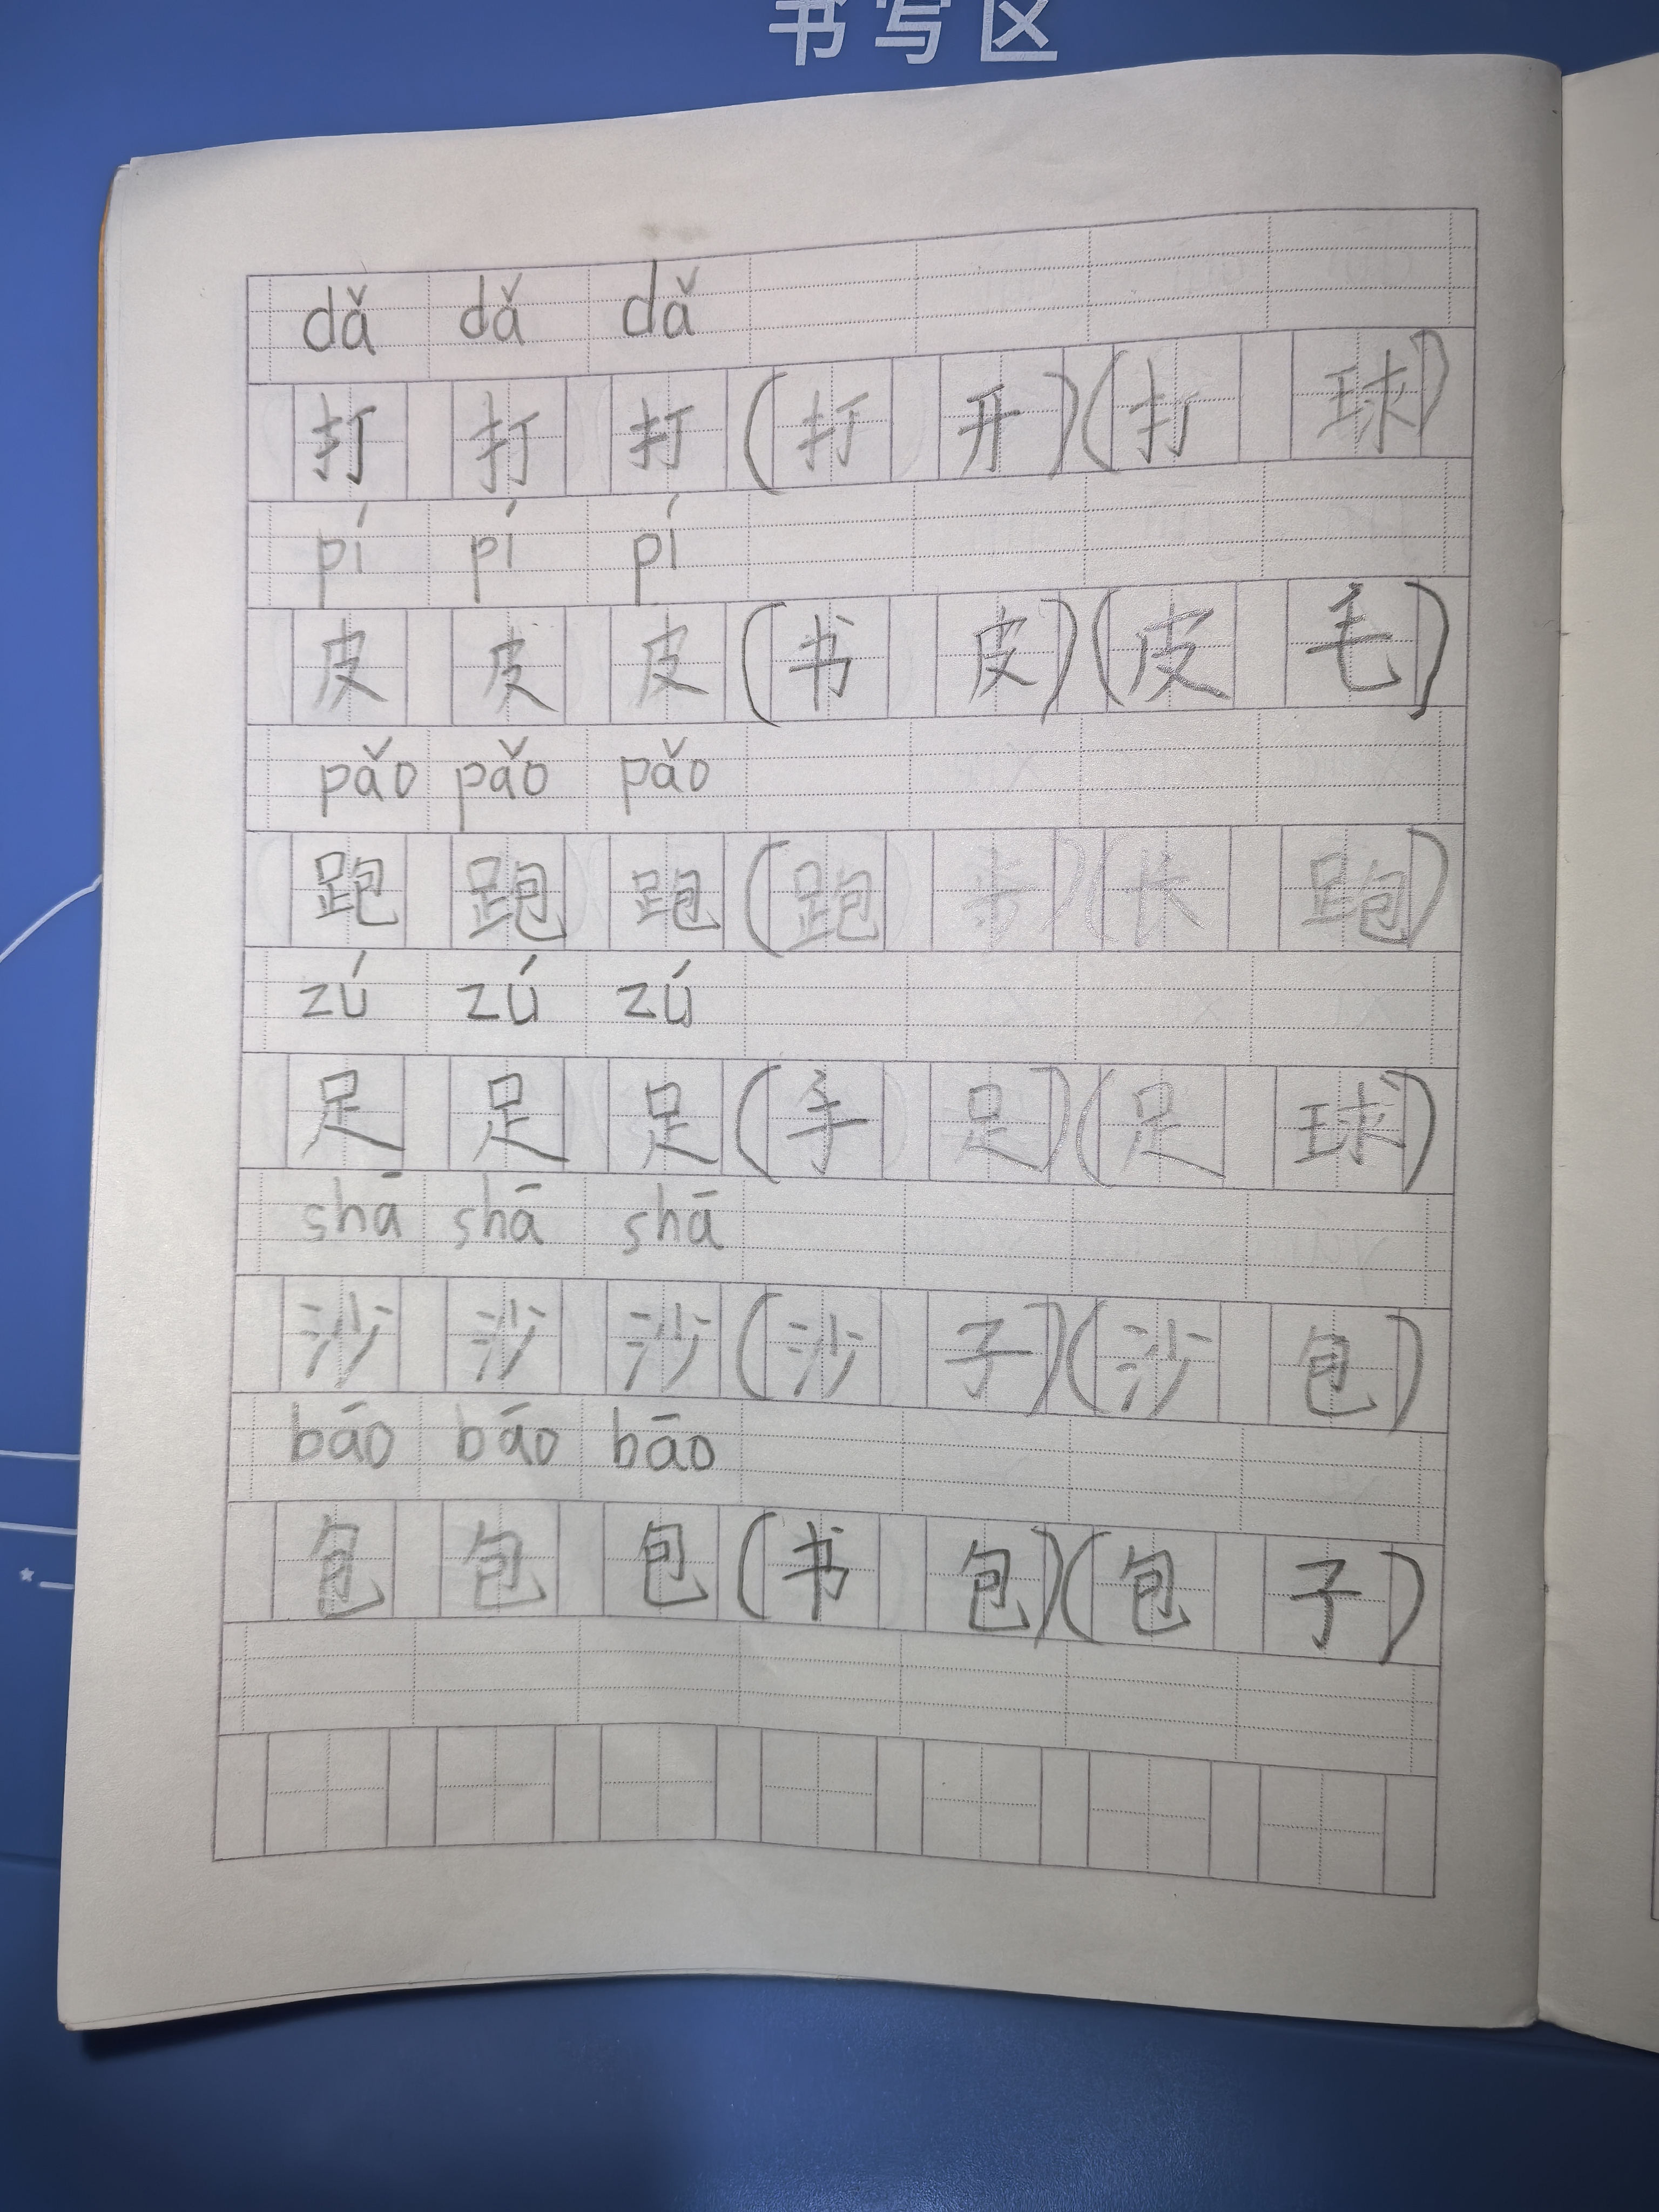 书写区
dǎ dǎ dǎ
打 打 打 (打 开) (打 球)
pí pí pí
皮 皮 皮 (书 皮) (皮 毛)
pǎo pǎo pǎo
跑 跑 跑 (跑 步) (长 跑)
zú zú zú
足 足 足 (手 足) (足 球)
shā shā shā
沙 沙 沙 (沙 子) (沙 包)
bāo bāo bāo
包 包 包 (书 包) (包 子)